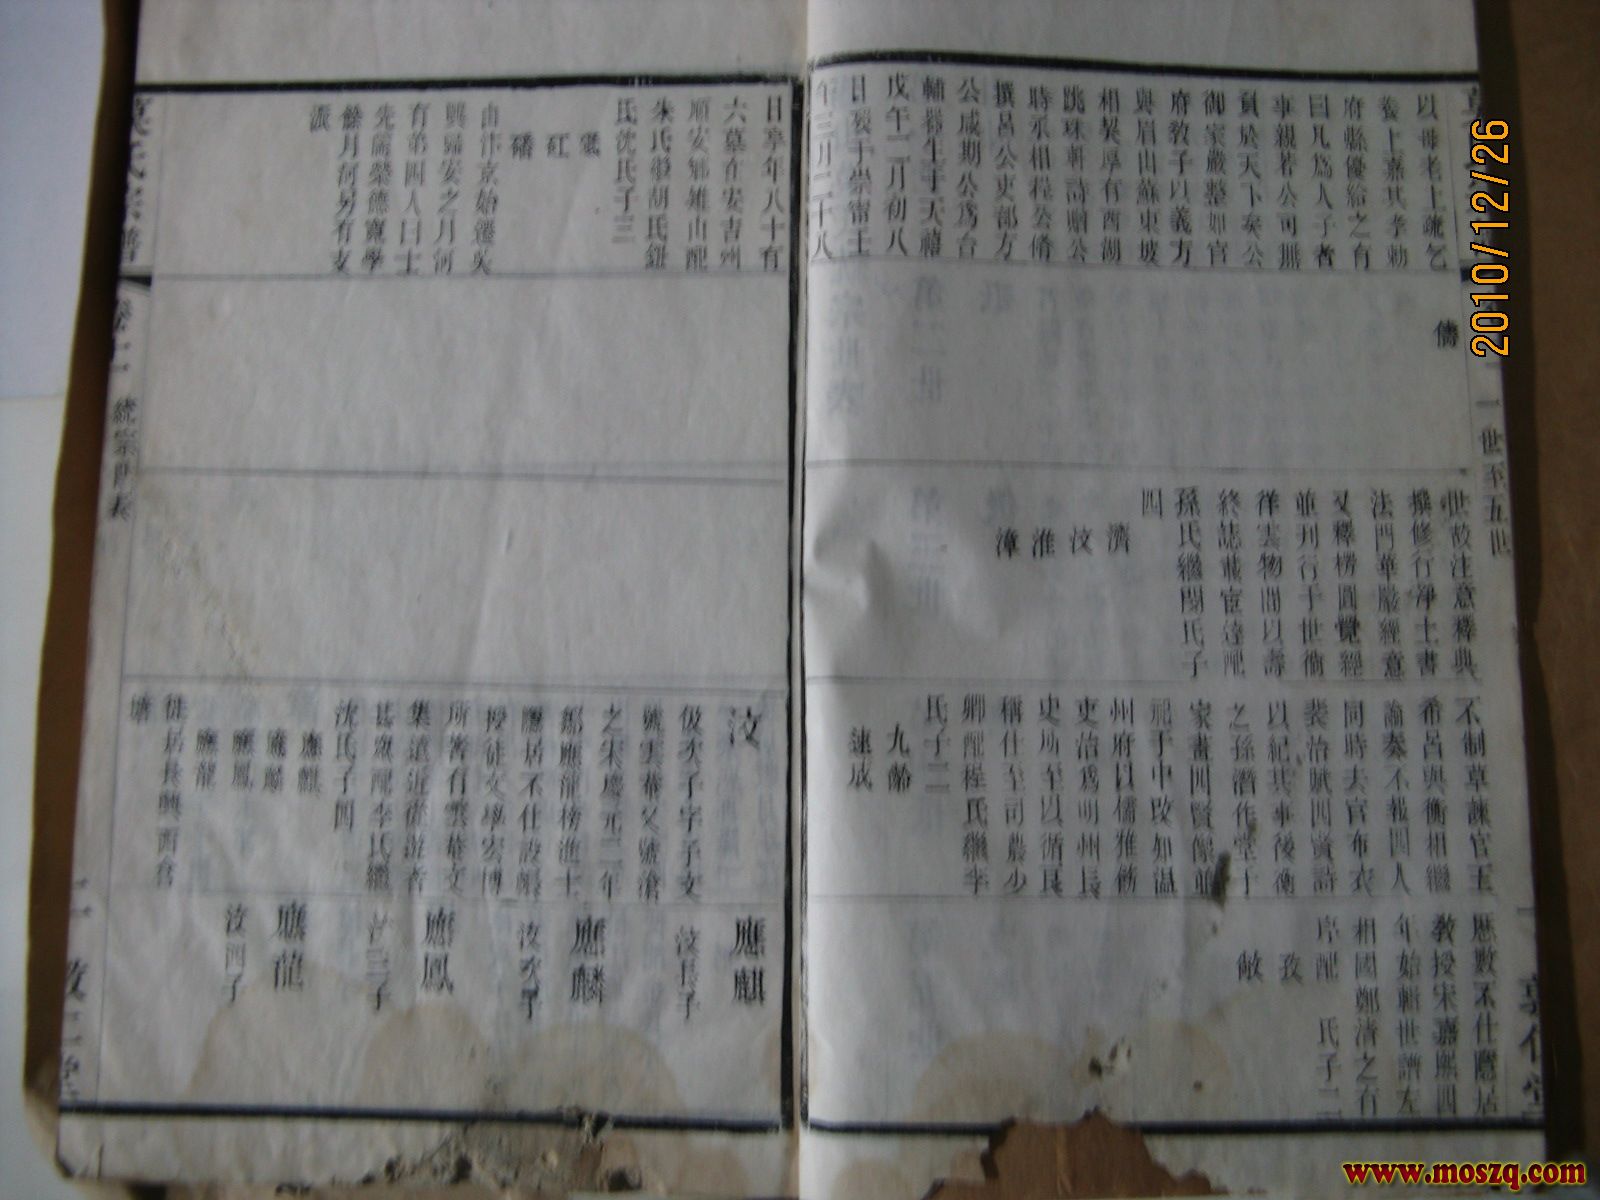 以母老上疏乞
養上嘉其孝勅
府縣優給之有
曰凡爲人子者
事親若公司無
負於天下矣公
御家嚴整如官
府教子以義方
與眉山蘇東坡
相契厚有西湖
跳珠軒詩贈公
時丞相程公脩
撰呂公吏部方
公咸期公爲台
輔器生于天禧
戊午二月初八
日終于崇甯壬
午三月二十八
儔
世故注意釋典
撰修行淨土書
法門華嚴經意
又釋楞圓覺經
並刊行于世衛
徉雲物間以壽
終誌載宦達配
孫氏繼閔氏子
四
濟
汶
淮
漳
不制草諫官王
希呂與衡相繼
論奏不報四人
同時去官布衣
裴治賦四賢詩
以紀其事後衡
之孫潛作堂于
家畫四賢像並
祀于中改知溫
州府以儒雅飭
吏治爲明州長
史所至以循良
稱仕至司農少
卿配程氏繼李
氏子二
九齡
速成
歷數不仕應居
教授宋嘉熙四
年始輯世譜左
相國鄭清之有
序配 氏子二
孜
敏
一世至五世
日享年八十有
六墓在安吉州
順安鄉雉山配
朱氏繼胡氏鍾
氏沈氏子三
紅
磻
由汴京始遷吳
興歸安之月河
有弟四人曰士
先
餘月河另有支
派
汶
伋次子字子文
號雲菴又號滄
之宋慶元二年
鄒應龍榜進士
隱居不仕設帳
授徒文學宏博
所著有雲菴文
集遠近從遊者
甚眾配李氏繼
沈氏子四
應麒
應麟
應鳳
應龍
徙居長興西合
塘
應麒
汶長子
應麟
汶次子
應鳳
汶三子
應龍
汶四子
統宗世表
2010/12/26
www.moszq.com